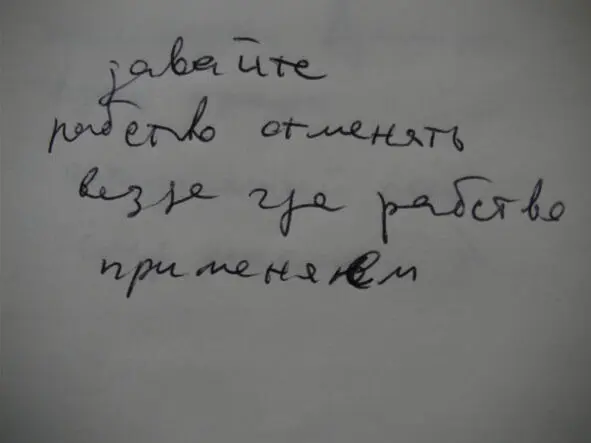 давайте
рабство отменять
везде где рабство
применяем